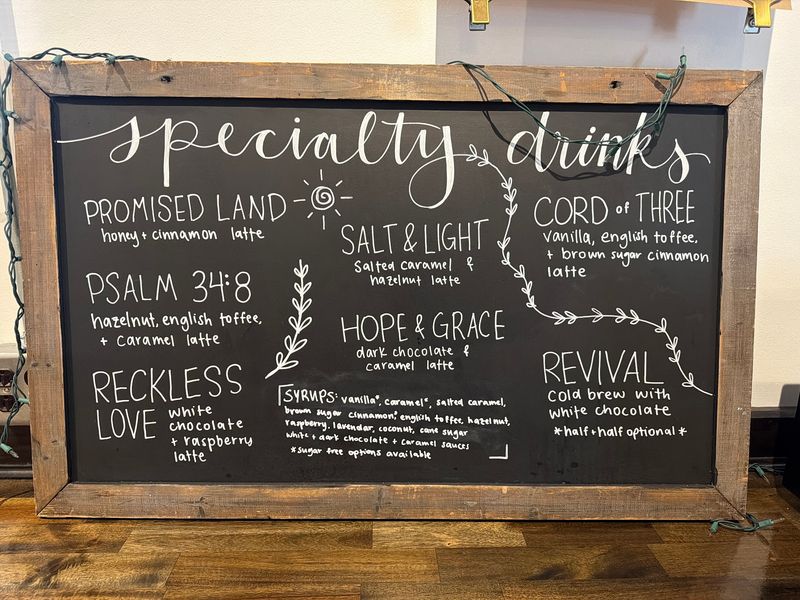 specialty drinks
PROMISED LAND
honey + cinnamon latte
PSALM 34:8
hazelnut, english toffee,
+ caramel latte
RECKLESS
LOVE
white
chocolate
+ raspberry
latte
SALT & LIGHT
salted caramel &
hazelnut latte
HOPE & GRACE
dark chocolate &
caramel latte
SYRUPS: vanilla*, caramel*, salted caramel,
brown sugar cinnamon,* english toffee, hazelnut,
raspberry, lavendar, coconut, cane sugar
white + dark chocolate + caramel sauces
*sugar free options available
CORD of THREE
vanilla, english toffee,
+ brown sugar cinnamon
latte
REVIVAL
cold brew with
white chocolate
*half + half optional*